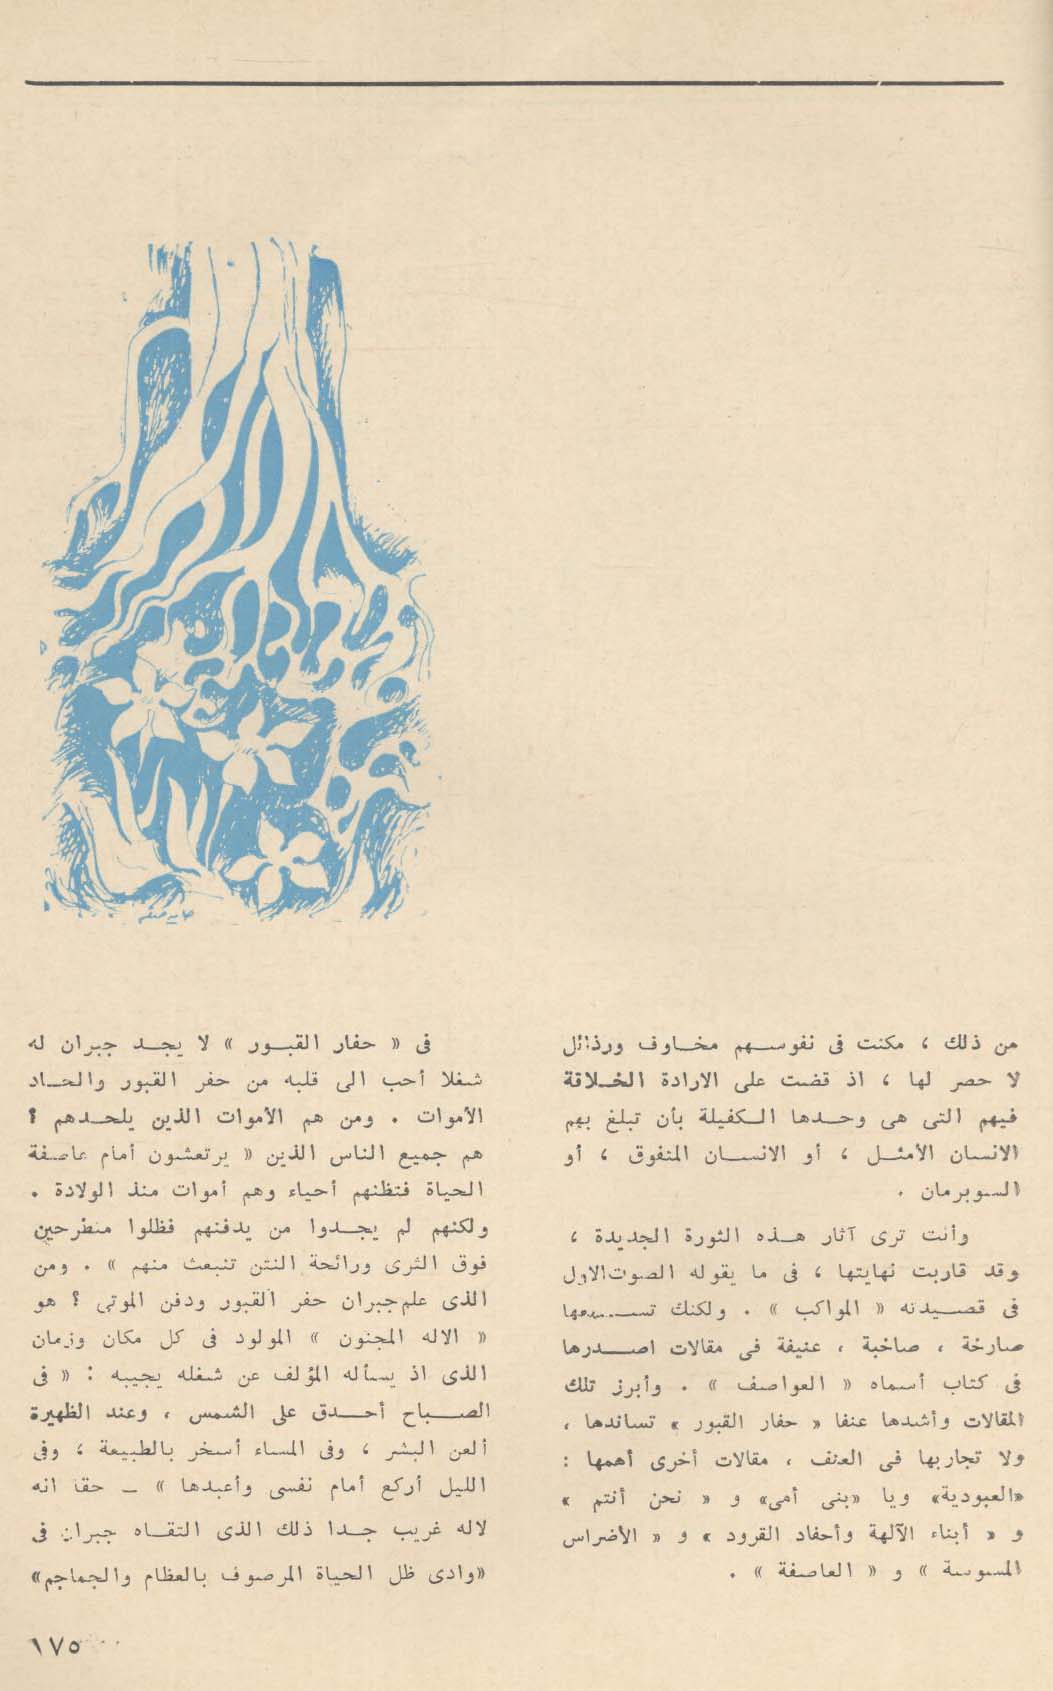 من ذلك ، مكنت فى نفوسهم مخاوف ورذائل
لا حصر لها ، اذ قضت على الارادة الخلاقة
فيهم التى هى وحدها الكفيلة بأن تبلغ بهم
الانسان الأمثل ، أو الانسان المتفوق ، أو
السوبرمان .
وأنت ترى آثار هذه الثورة الجديدة ،
وقد قاربت نهايتها ، فى ما يقوله الصوت الاول
فى قصيدته « المواكب » . ولكنك تسمعها
صارخة ، صاخبة ، عنيفة فى مقالات اصدرها
فى كتاب أسماه « العواصف » . وأبرز تلك
المقالات وأشدها عنفا « حفار القبور » تساندها ،
ولا تجاريها فى العنف ، مقالات أخرى أهمها :
«العبودية» ويا «بنى أمى» و « نحن أنتم »
و « أبناء الآلهة وأحفاد القرود » و « الأضراس
المسوسة » و « العاصفة » .
فى « حفار القبور » لا يجد جبران له
شغلا أحب الى قلبه من حفر القبور والحاد
الأموات . ومن هم الأموات الذين يلحدهم ؟
هم جميع الناس الذين « يرتعشون أمام عاصفة
الحياة فتظنهم أحياء وهم أموات منذ الولادة .
ولكنهم لم يجدوا من يدفنهم فظلوا منطرحين
فوق الثرى ورائحة النتن تنبعث منهم » . ومن
الذى علم جبران حفر القبور ودفن الموتى ؟ هو
« الاله المجنون » المولود فى كل مكان وزمان
الذى اذ يسأله المؤلف عن شغله يجيبه : « فى
الصباح أحدق على الشمس ، وعند الظهيرة
ألعن البشر ، وفى المساء أسخر بالطبيعة ، وفى
الليل أركع أمام نفسى وأعبدها » – حقا انه
لاله غريب جدا ذلك الذى التقاه جبران فى
«وادى ظل الحياة المرصوف بالعظام والجماجم»
١٧٥